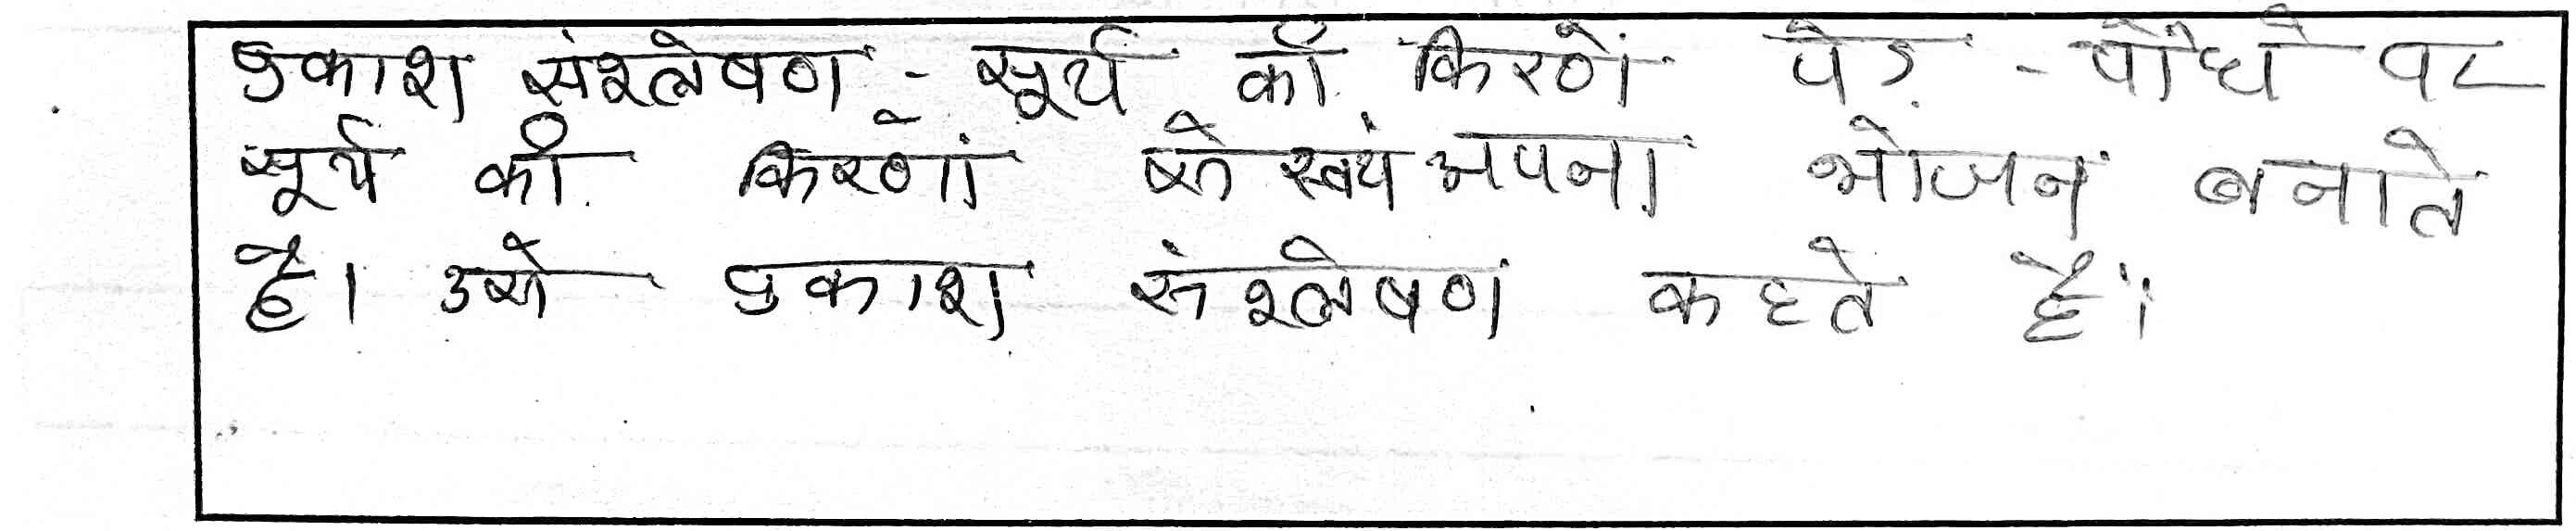 प्रकाश संश्लेषण - सूर्य की किरणें पेड़ - पौधे पर
सूर्य की किरणों से स्वयं अपना भोजन बनाते
है। उसे प्रकाश संश्लेषण कहते हैं।